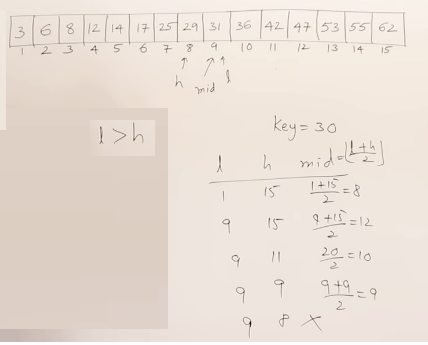 3 6 8 12 14 17 25 29 31 36 42 47 53 55 62
1 2 3 4 5 6 7 8 9 10 11 12 13 14 15
h mid l
l > h
Key = 30
l h mid = ⌊(l+h)/2⌋
1 15 (1+15)/2 = 8
9 15 (9+15)/2 = 12
9 11 20/2 = 10
9 9 (9+9)/2 = 9
9 8 ×